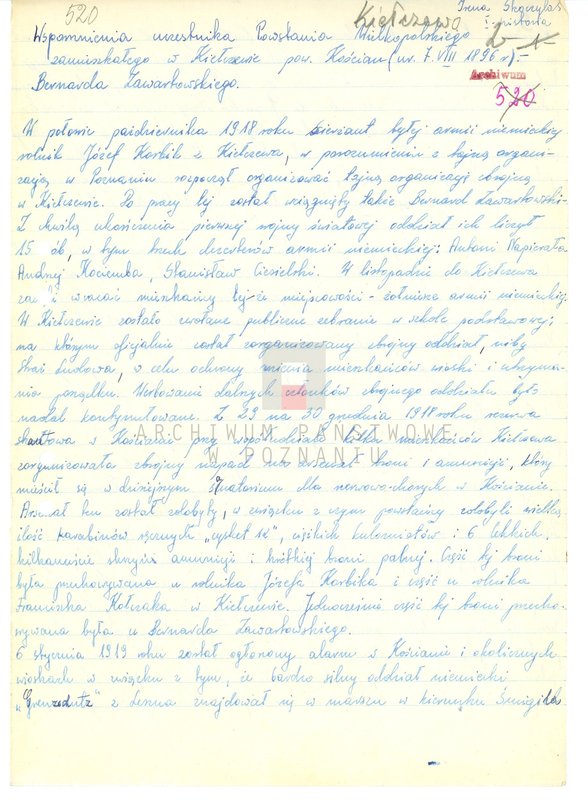 520
Kiełczewo
Irena Skrzypczak
Wspomnienia uczestnika Powstania Wielkopolskiego
zamieszkałego w Kiełczewie pow. Kościan (ur. 7. VIII 1896 r) -
Bernarda Zawartowskiego.
Archiwum
520
W połowie października 1918 roku sierżant byłej armii niemieckiej
rolnik Józef Karbik z Kiełczewa, w porozumieniu z tajną organi-
zacją w Poznaniu rozpoczął organizować tajną organizację zbrojną
w Kiełczewie. Do pracy tej został wciągnięty także Bernard Zawartowski.
Z chwilą ukończenia pierwszej wojny światowej oddział ich liczył
15 ób, w tym trzech dezerterów armii niemieckiej: Antoni Napierała
Andrzej Kociemba, Stanisław Ciesielski. W listopadzie do Kiełczewa
zaczęli wracać mieszkańcy tejże miejscowości - żołnierze armii niemieckiej.
W Kiełczewie zostało zwołane publiczne zebranie w szkole podstawowej;
na którym oficjalnie został zorganizowany zbrojny oddział, niby
straż ludowa, w celu ochrony mienia mieszkańców wioski i utrzyma-
nia porządku. Werbowanie dalszych członków zbrojnego oddziału było
nadal kontynuowane. Z 29 na 30 grudnia 1918 roku rezerwa
skautowa w Kościanie przy współudziale kilku mieszkańców Kiełczewa
zorganizowała zbrojny napad na arsenał broni i amunicji, który
mieścił się w dzisiejszym Sanatorium dla nerwowo-chorych w Kościanie.
Arsenał ten został zdobyty, w związku z czym powstańcy zdobyli wielką
ilość karabinów ręcznych, ciężkich kulomiotów i 6 lekkich,
kilkanaście skrzyń amunicji i krótkiej broni palnej. Część tej broni
była przechowywana u rolnika Józefa Karbika i część u rolnika
Franciszka Kołczaka w Kiełczewie. Jednocześnie część tej broni przecho-
wywana była u Bernarda Zawartowskiego.
6 stycznia 1919 roku został ogłoszony alarm w Kościanie i okolicznych
wioskach w związku z tym, że bardzo silny oddział niemiecki
"Grenzschutz" z Leszna znajdował się w marszu w kierunku Śmigla
ARCHIWUM PAŃSTWOWE
W POZNANIU